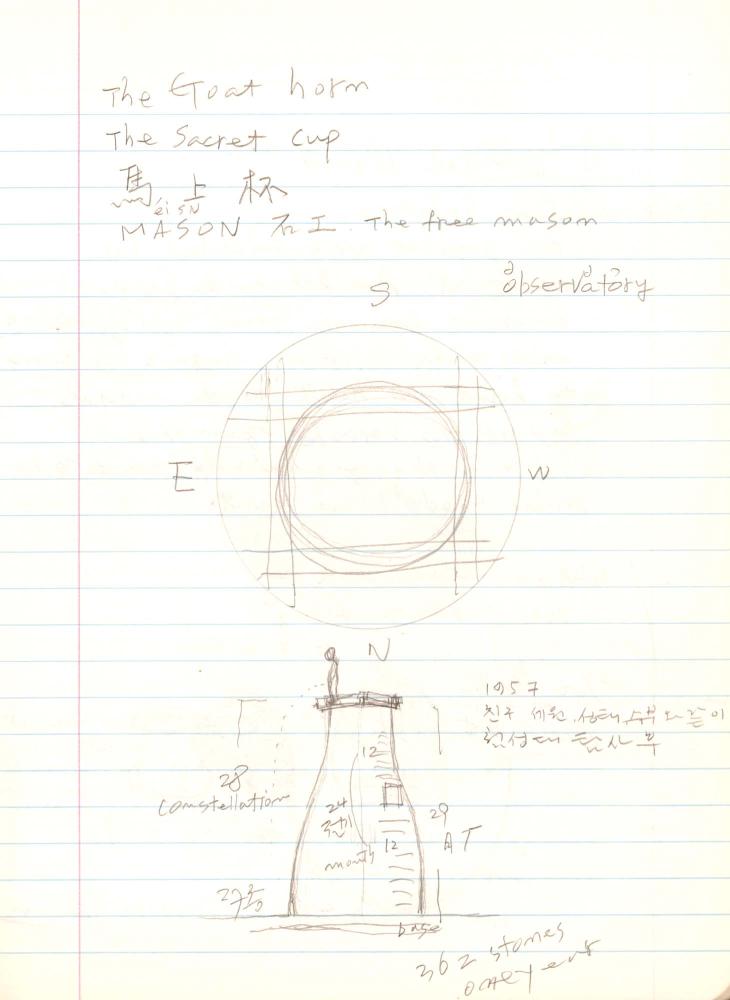 The Goat horn
The Sacret Cup
馬上杯
éi sN
MASON 石工. The free mason
observatory
S
E
W
N
1957
친구 세원, 성태, 수부와 같이
첨성대 답사
12
28
Constellation
24
절기
29
AT
12
month
27층
base
362 stones
one year